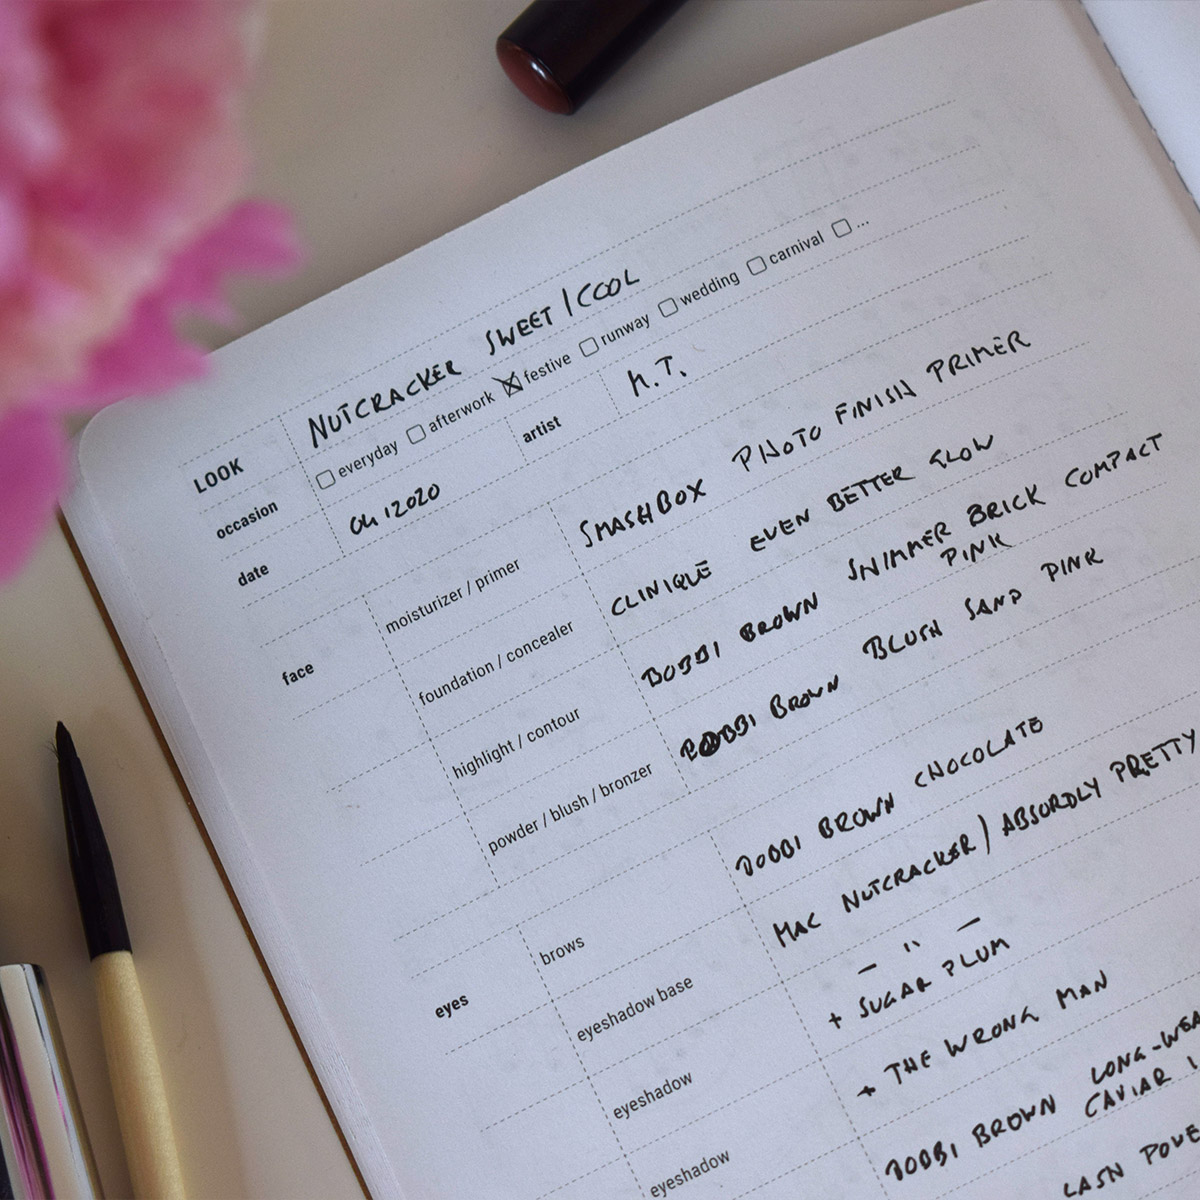 LOOK NUTCRACKER SWEET / COOL
occasion everyday afterwork festive runway wedding carnival ...
date 04 / 2020 artist M.T.
face moisturizer / primer SMASHBOX PHOTO FINISH PRIMER
foundation / concealer CLINIQUE EVEN BETTER GLOW
highlight / contour BOBBI BROWN SHIMMER BRICK COMPACT
PINK
powder / blush / bronzer BOBBI BROWN BLUSH SAND PINK
eyes brows BOBBI BROWN CHOCOLATE
eyeshadow base MAC NUTCRACKER / ABSURDLY PRETTY
eyeshadow — " —
+ SUGAR PLUM
eyeshadow + THE WRONG MAN
BOBBI BROWN LONG-WEA
CAVIAR
LASH POWE